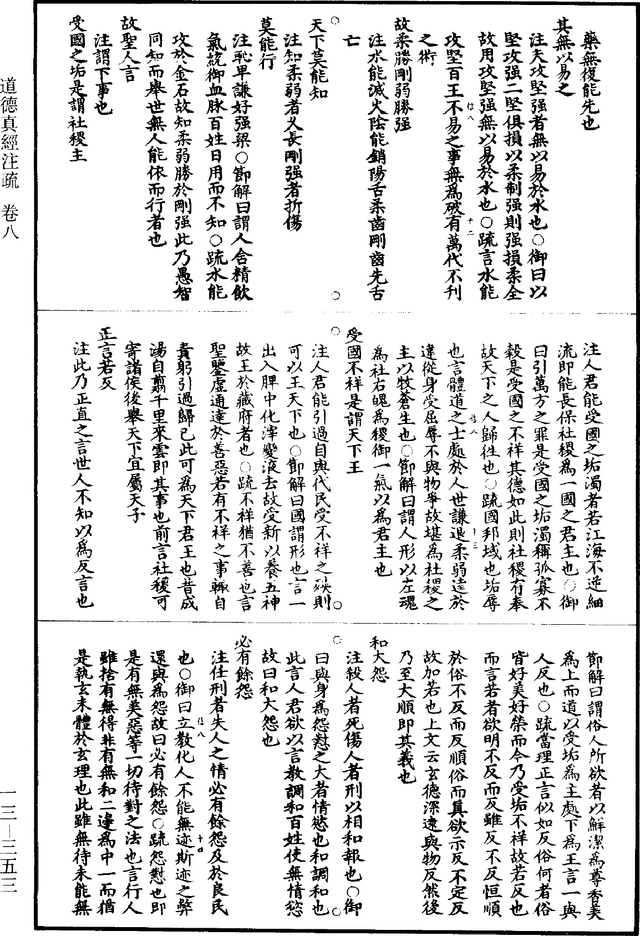 藥無復能先也
其無以易之
注夫攻堅强者無以易於水也○御曰以
堅攻强二堅俱損以柔制强則强損柔全
故用攻堅强無以易於水也○疏言水能
攻堅百王不易之事無爲破有萬代不刋
之術
故柔勝剛弱勝强
注水能滅火陰能銷陽舌柔齒剛齒先舌
亡
天下莫能知
注知柔弱者乆長剛强者折傷
莫能行
注恥卑謙好强梁○節解曰謂人含精飲
氣統御血脉百姓日用而不知○疏水能
攻於金石故知柔弱勝於剛强此乃愚智
同知而舉世無人能依而行者也
故聖人言
注謂下事也
受國之垢是謂社稷主
注人君能受國之垢濁者若江海不逆細
流即能長保社稷爲一國之君主也○御
曰引萬方之罪是受國之垢濁稱孤寡不
穀是受國之不祥其德如此則社稷有奉
故天下之人歸徃也○疏國邦域也垢辱
也言體道之士處於人世謙退柔弱遠於
違從身受屈辱不與物爭故堪爲社稷之
主以牧蒼生也○節解曰謂人形以左魂
爲社右魄爲稷御一氣以爲君主也
受國不祥是謂天下王
注人君能引過自與代民受不祥之殃則
可以王天下也○節解曰國謂形也言一
出入脾中化滓變液去故受新以養五神
故王於藏府者也○疏不祥猶不善也言
聖鑒虛通達於善惡若有不祥之事輙自
責躬引過歸己此可爲天下君王也昔成
湯自翦千里來雲即其事也前言社稷可
寄諸侯後舉天下宜屬天子
正言若反
注此乃正直之言世人不知以爲反言也
節解曰謂俗人所欲者以鮮潔爲尊香美
爲上而道以受垢爲主處下爲王言一與
人反也○疏當理正言似如反俗何者俗
皆好美好榮而今乃受垢不祥故若反也
而言若者欲明不反而反雖反不反恒順
於俗不反而反順俗而眞欲示反不定反
故加若也上文云玄德深遠與物反然後
乃至大順即其義也
和大怨
注殺人者死傷人者刑以相和報也○御
曰與身爲怨懟之大者情慾也和調和也
此言人君欲以言教調和百姓使無情慾
故曰和大怨也
必有餘怨
注任刑者失人之情必有餘怨及於良民
也○御曰立教化人不能無迹斯迹之弊
還與爲怨故曰必有餘怨○疏怨懟也即
是有無美惡等一切待對之法也言行人
雖捨有無得非有無和二邊爲中一而猶
是執玄未體於玄理也此雖無待未能無
道德真經注疏　卷八
一三—三五三